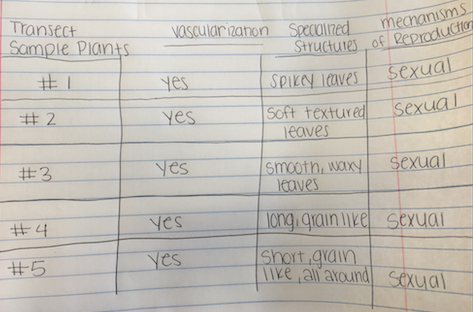 Transect Sample Plants | vascularization | Specialized Structures | mechanisms of Reproduction
#1 | yes | spikey leaves | sexual
#2 | yes | soft textured leaves | sexual
#3 | yes | smooth, waxy leaves | sexual
#4 | yes | long, grain like | sexual
#5 | yes | short, grain like, all around | sexual